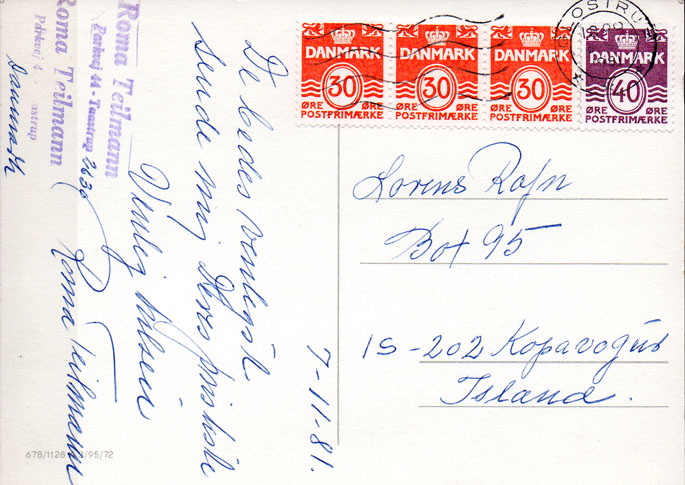 Roma Teilmann
Parkvej 44 - Taastrup 2630
Roma Teilmann
Parkvej 4
astrup
Danmark
De bedes venligst
sende mig Deres prisliste
Venlig hilsen
Roma Teilmann
7-11-81.
678/1128
/95/72
DANMARK
30
ØRE ØRE
POSTFRIMÆRKE
DANMARK
30
ØRE ØRE
POSTFRIMÆRKE
DANMARK
30
ØRE ØRE
POSTFRIMÆRKE
DANMARK
40
ØRE ØRE
POSTFRIMÆRKE
Lorens Rafn
Box 95
IS-202 Kopavogur
Island.